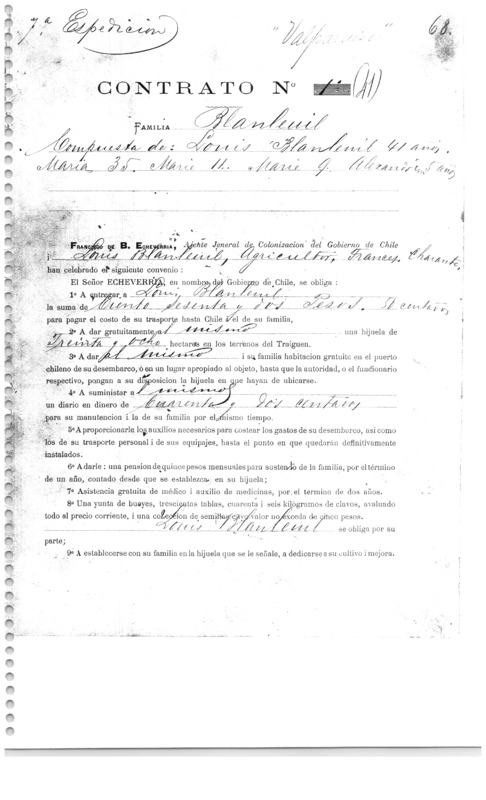 7ª Espedicion "Valparaiso" 68.
CONTRATO Nº 1º (41)
FAMILIA Blanleuil
Compuesta de: Louis Blanleuil 41 años.
Maria 35. Marie 11. Marie 9. Alexandre, 5 años
FRANCISCO DE B. ECHEVERRIA, Ajente Jeneral de Colonizacion del Gobierno de Chile
i Louis Blanleuil, Agricultor, Frances, Charante,
han celebrado el siguiente convenio:
El Señor ECHEVERRIA, en nombre del Gobierno de Chile, se obliga:
1º A entregar a Louis Blanleuil
la suma de Ciento sesenta y dos Pesos. 50 centavos
para pagar el costo de su trasporte hasta Chile i el de su familia,
2º A dar gratuitamente al mismo una hijuela de
Treinta y ocho hectares en los terrenos del Traiguen.
3º A dar al mismo i su familia habitacion gratuite en el puerto
chileno de su desembarco, ó en un lugar apropiado al objeto, hasta que la autoridad, o el funcionario
respectivo, pongan a su disposicion la hijuela en que hayan de ubicarse.
4º A suministar al mismo
un diario en dinero de Cuarenta y dos centavos
para su manutencion i la de su familia por el mismo tiempo.
5º A proporcionarle los auxilios necesarios para costear los gastos de su desembarco, asi como
los de su trasporte personal i de sus equipajes, hasta el punto en que quedarán definitivamente
instalados.
6º A darle: una pension de quince pesos mensuales para sustendo de la familia, por el término
de un año, contado desde que se establezca en su hijuela;
7º Asistencia gratuita de médico i auxilio de medicinas, por el termino de dos años.
8º Una yunta de bueyes, trescientas tablas, cuarenta i seis kilógramos de clavos, avaluando
todo al precio corriente, i una colección de semillas cuyo valor no exceda de cinco pesos.
Louis Blanleuil se obliga por su
parte;
9º A establecerse con su familia en la hijuela que se le señale, a dedicarse a su cultivo i mejora.